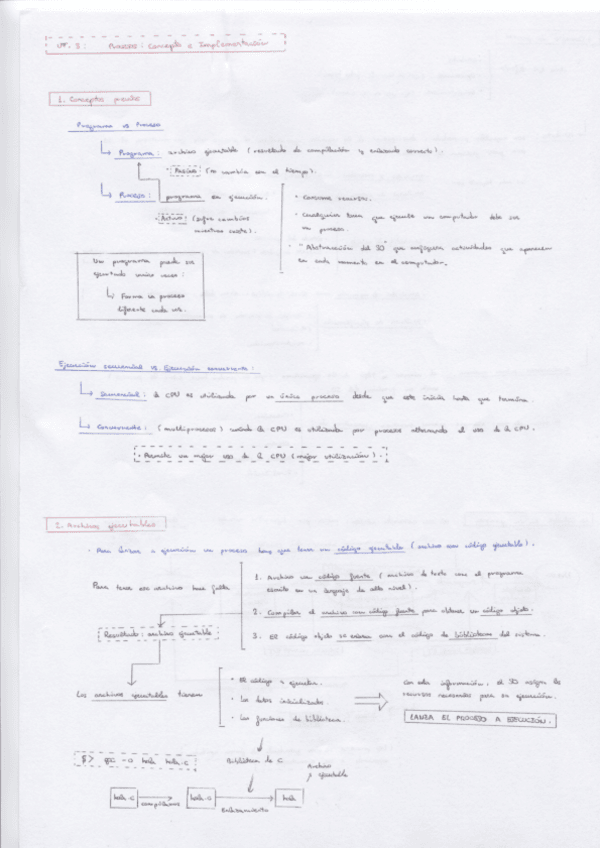 UT. 3: Procesos: Concepto e Implementación
1. Conceptos previos
Programa vs Proceso
Programa: archivo ejecutable (resultado de compilación y enlazado correcto).
· Pasivo: (no cambia con el tiempo).
Proceso: programa en ejecución.
· Activo: (sufre cambios
mientras existe).
· Consume recursos.
· Cualquier tarea que ejecute un computador debe ser
un proceso.
· "Abstracción del SO" que engloba actividades que aparecen
en cada momento en el computador.
Un programa puede ser
ejecutado varias veces:
Forma un proceso
diferente cada vez.
Ejecución secuencial vs Ejecución concurrente:
Secuencial: la CPU es utilizada por un único proceso desde que este inicia hasta que termina.
Concurrente: (multiproceso) cuando la CPU es utilizada por procesos alternando el uso de la CPU.
· Permite un mejor uso de la CPU (mejor utilización).
2. Archivos ejecutables
· Para lanzar a ejecución un proceso hay que tener un código ejecutable (archivo con código ejecutable).
Para tener ese archivo hace falta
1. Archivo con código fuente (archivo de texto con el programa
escrito en un lenguaje de alto nivel).
2. Compilar el archivo con código fuente para obtener un código objeto.
3. El código objeto se enlaza con el código de bibliotecas del sistema.
Resultado: archivo ejecutable
Los archivos ejecutables tienen
· El código a ejecutar.
· Los datos inicializados.
· Las funciones de biblioteca.
Con esta información, el SO asigna los
recursos necesarios para su ejecución.
LANZA EL PROCESO A EJECUCIÓN.
$> gcc -o hola hola.c
Biblioteca de C
Archivo
ejecutable
hola.c
compilamos
hola.o
Enlazamiento
hola